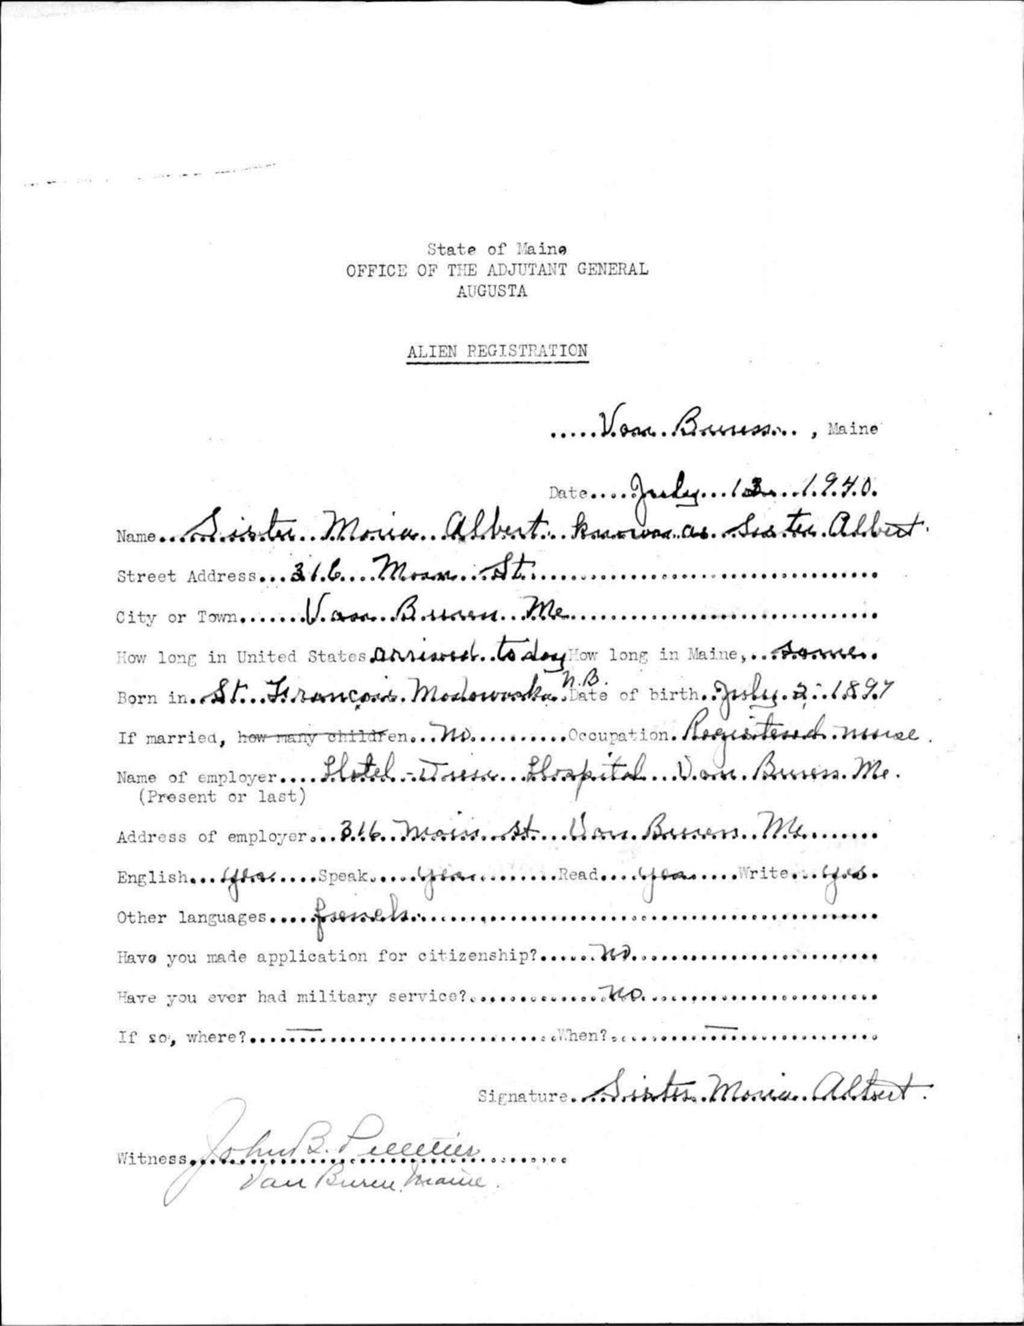 State of Maine
OFFICE OF THE ADJUTANT GENERAL
AUGUSTA
ALIEN REGISTRATION
.....Van Buren.., Maine
Date....July...13...1940.
Name...Sister..Maria..Albert..known.as..Sister Albert.
Street Address...316...Main..St...............
City or Town.......Van..Buren..Me...............
How long in United States.arrived..today How long in Maine,..same..
Born in..St..Francois.Madawaska N.B. Date of birth..July.2.1897
If married, how many children...No..........Occupation.Registered.nurse.
Name of employer....Hotel-Dieu..Hospital..Van.Buren.Me.
(Present or last)
Address of employer...316.Main..St...Van Buren..Me........
English...yes.....Speak.....yes..........Read....yes......Write...yes.
Other languages.....french...............
Have you made application for citizenship?......No...............
Have you ever had military service?...............No...............
If so, where?.....—...............When?.........—...............
Signature..Sister.Maria..Albert.
Witness..John B. Pelletier...........
Van Buren, Maine.